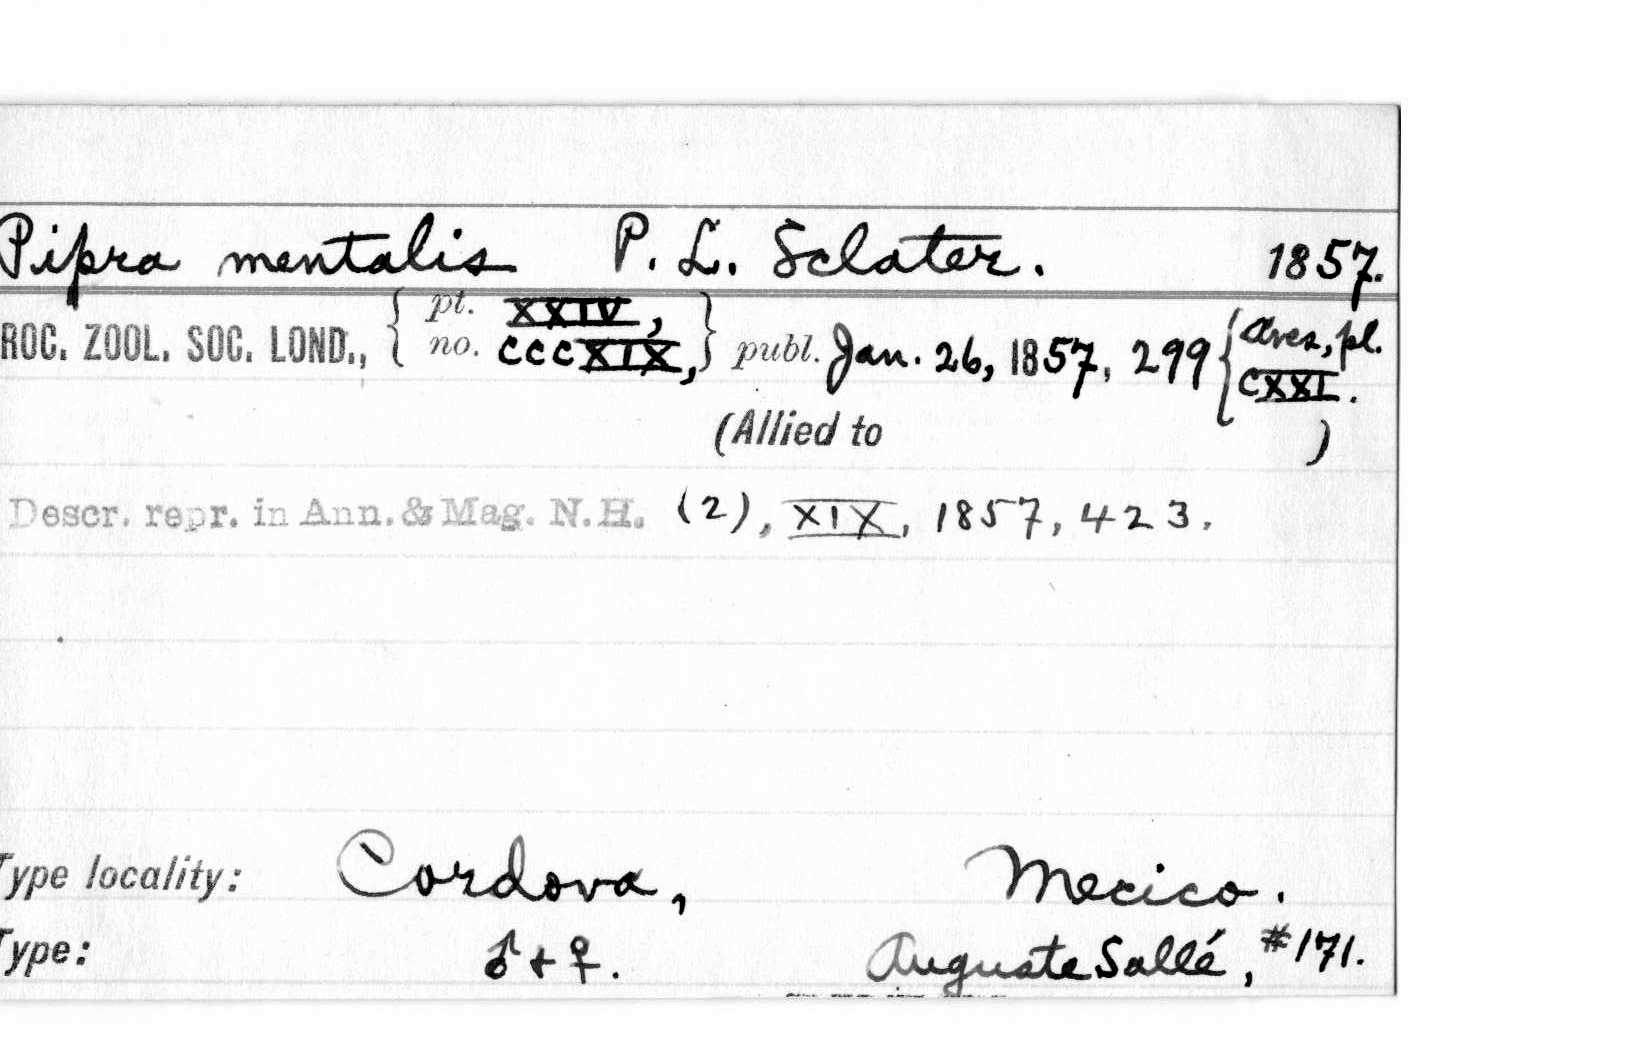 Pipra mentalis P. L. Sclater. 1857.
ROC. ZOOL. SOC. LOND., { pt. XXIV, no. CCCXIX, } publ. Jan. 26, 1857, 299 { Aves, pl. CXXI.
(Allied to )
Descr. repr. in Ann. & Mag. N. H. (2), XIX, 1857, 423.
Type locality: Cordova, Mexico.
Type: ♂ + ♀. Auguste Sallé, #171.